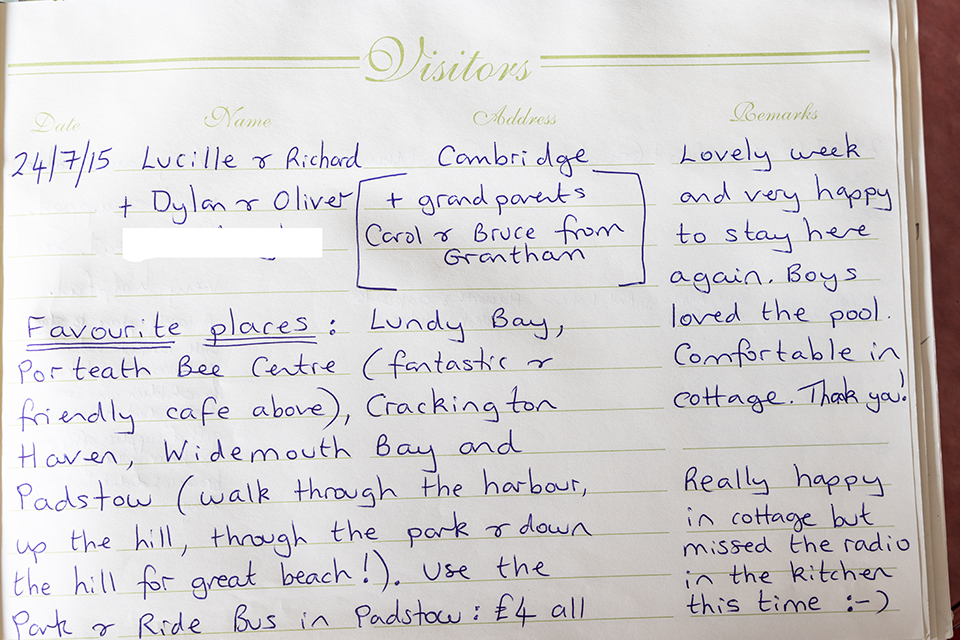 Visitors
Date Name Address Remarks
24/7/15 Lucille & Richard
+ Dylan & Oliver
Cambridge
+ grandparents
Carol & Bruce from
Grantham
Lovely week
and very happy
to stay here
again. Boys
loved the pool.
Comfortable in
cottage. Thank you!
Favourite places: Lundy Bay,
Porteath Bee Centre (fantastic &
friendly cafe above), Crackington
Haven, Widemouth Bay and
Padstow (walk through the harbour,
up the hill, through the park & down
the hill for great beach!). Use the
Park & Ride Bus in Padstow: £4 all
Really happy
in cottage but
missed the radio
in the kitchen
this time :-)